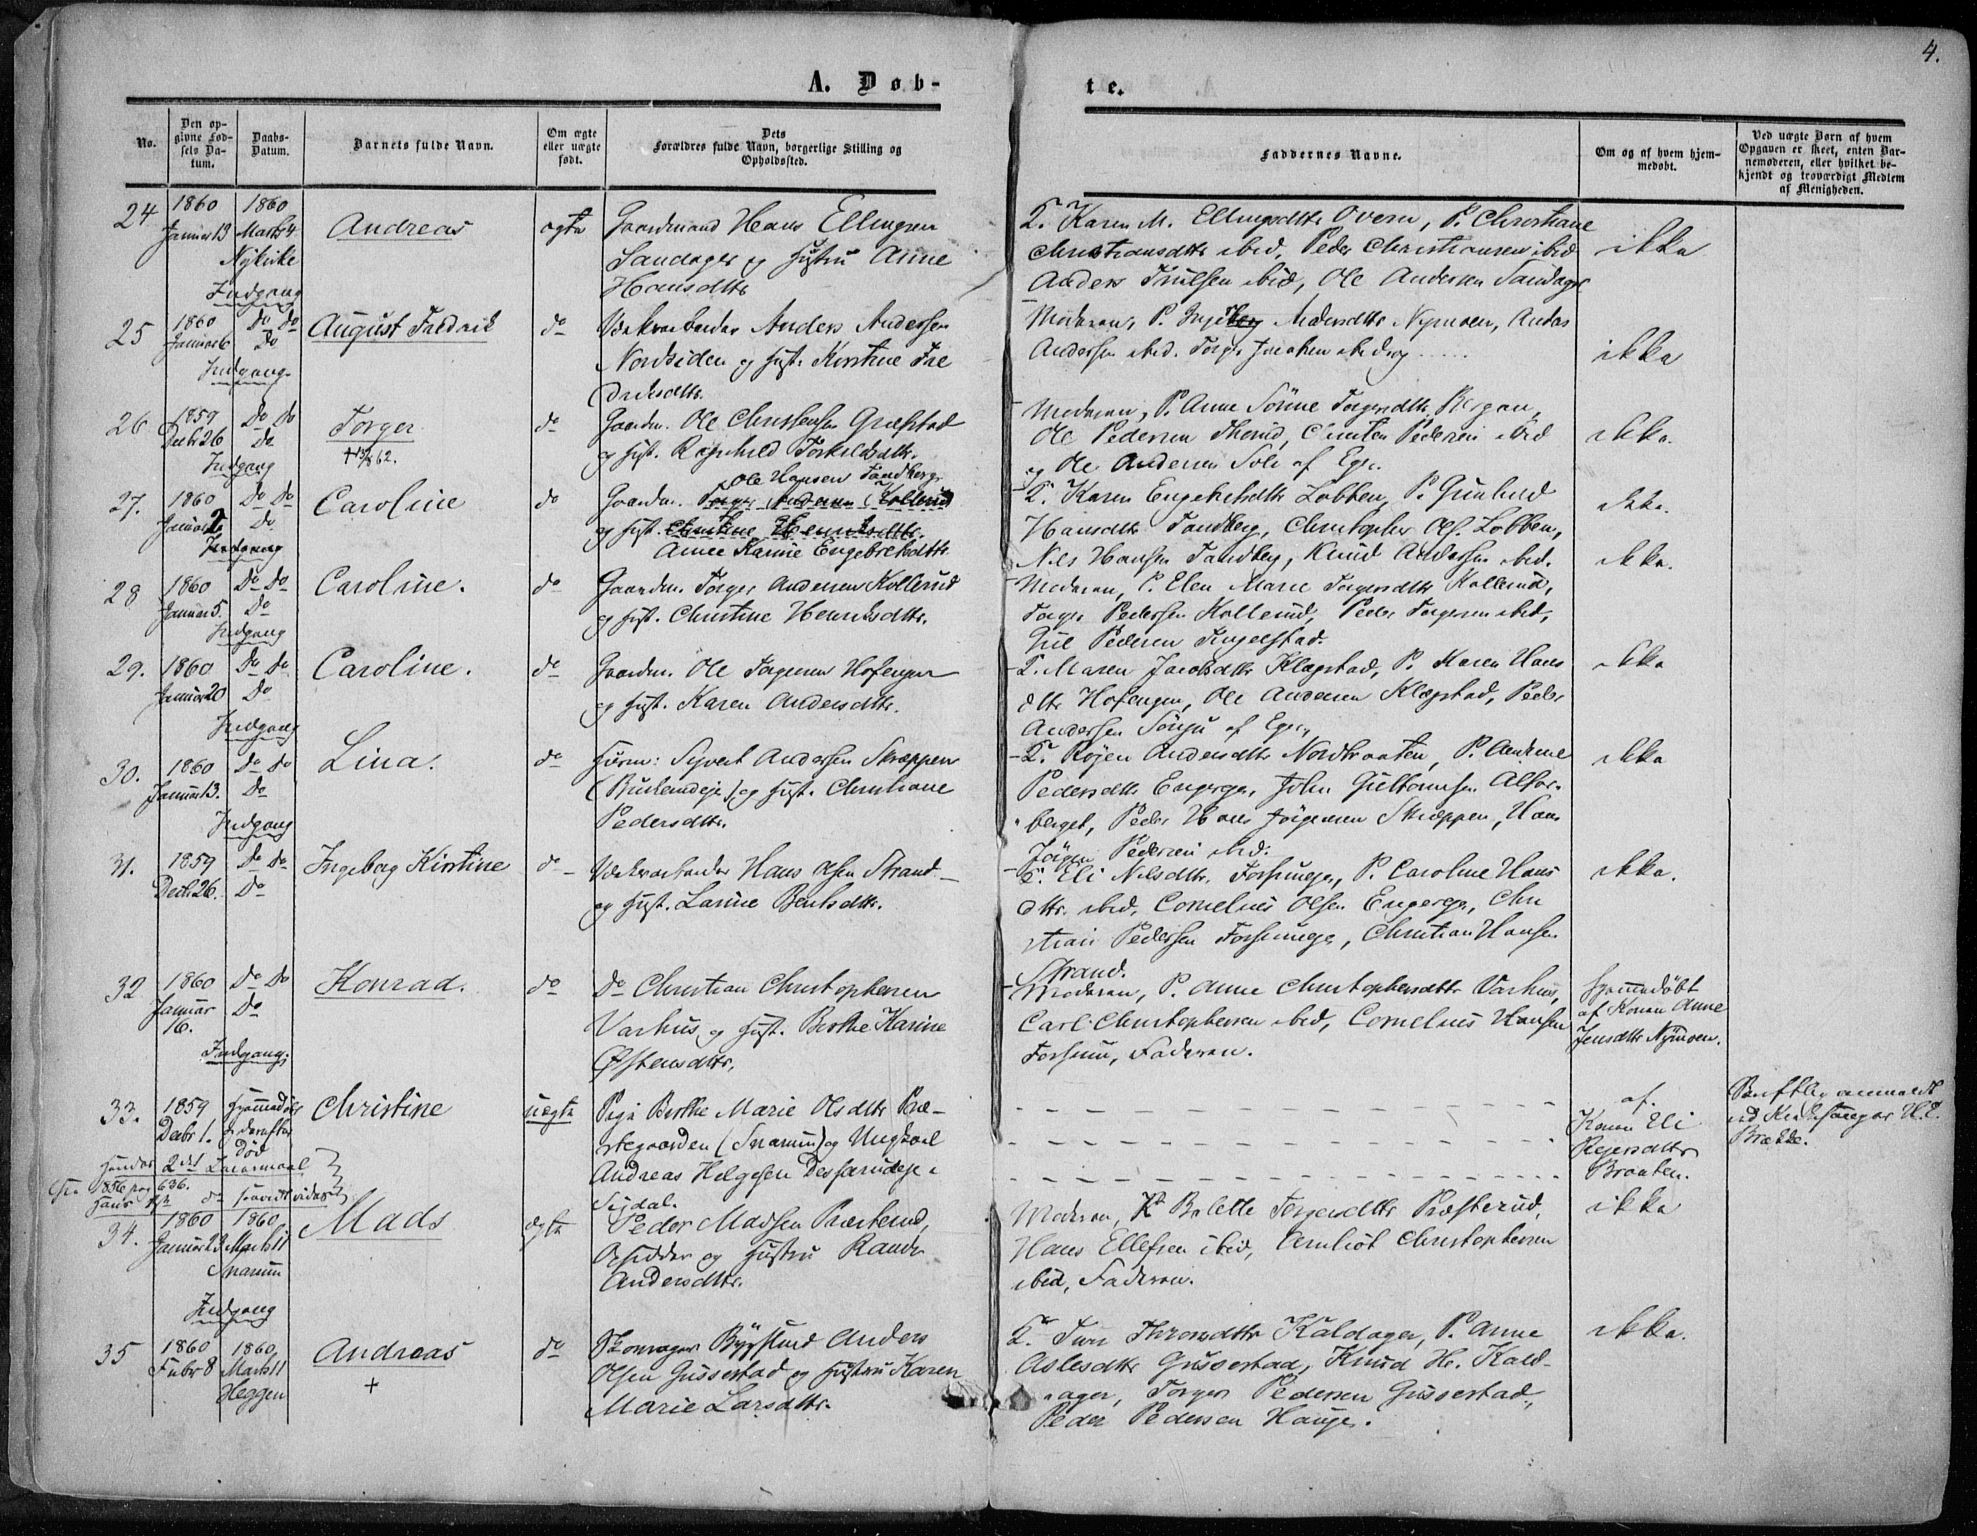 4.
A. Døb-
te.
No.
Den op-
givne Fød-
sels Da-
tum.
Daabs-
Datum.
Barnets fulde Navn.
Om ægte
eller uægte
født.
Dets
Forældres fulde Navn, borgerlige Stilling og
Opholdssted.
Faddernes Navne.
Om og af hvem hjem-
medøbt.
Ved uægte Børn af hvem
Opgaven er skeet, enten Bar-
nemoderen, eller hvilket be-
kjendt og troværdigt Medlem
af Menigheden.
24
1860
Januar 13
1860
Marts 4
Nykirke
Indgang
Andreas
ægte
Gaardmand Hans Ellingsen
Sandager og Hustru Anne
Hansdttr
T. Karen M. Ellingsdttr Overn, P. Christiane
Christiansdttr ibid, Peder Christiansen ibid
Anders Truelsen ibid, Ole Andersen Sandager
ikke
25
1860
Januar 6
Do Do
Do
Indgang
August Fredrik
do
Værkarbeider Anders Andersen
Nordsiden og Hust. Kirstine Fre
driksdttr.
Moderen, P. Ingeborg Andersdttr Nymoen, Anders
Andersen ibid. Torger Jacobsen ibid og .....
ikke
26
1859
Decb 26
Do Do
Do
Indgang
Torger
do
Gaardm. Ole Christensen Græfstad
og Hust. Ragnhild Torkildsdttr.
Moderen, P. Anne Torgersdttr Bergan,
Ole Pedersen Thorud, Christen Pedersen ibid
og Ole Andersen Sole af Eger.
ikke.
27.
1860
Januar 2
Do Do
Do
Indgang
Caroline
do
Ole Hansen Sandberg
Gaardm. Torger Andersen Kollerud
og Hust. Christine Henriksdttr.
Anne Karine Engebretsdttr
T. Karen Engebretsdttr Lobben, P. Gunhild
Hansdttr Sandberg, Christopher Ols. Lobben,
Nils Hansen Sandberg, Knud Andersen ibid.
ikke.
28
1860
Januar 5.
Do Do
Do
Indgang
Caroline.
do
Gaardm. Torger Andersen Kollerud
og Hust. Christine Henriksdttr.
Moderen, P. Elen Marie Torgersdttr Kollerud,
Torger Pedersen Kollerud, Peder Torgersen ibid,
Pedersen Tingelstad.
ikke.
29.
1860
Januar 20
Do Do
Do
Indgang
Caroline.
do
Gaardm. Ole Torgersen Hofengen
og Hust. Karen Andersdttr.
T. Maren Jacobsdttr Klægstad, P. Karen Hans
dttr Hofengen, Ole Andersen Klægstad, Peder
Andersen af Eger.
ikke
30.
1860
Januar 13.
Do Do
Do
Indgang
Lina.
do
Husm: Syvert Andersen Skræppen
og Hust. Christiane
Pedersdttr.
T. Andersdttr Nordbraaten, P. Andrine
Pedersdttr Enger, John
berget, Peder Hans Jørgensen Skræppen, Hans
Jørgen Pedersen ibid.
ikke
31.
1859
Decb 26.
Do Do
Do
Ingeborg Kirstine
do
Værkarbeider Hans Olsen Strand
og Hust. Larine Berntsdttr.
T. Eli Nilsdttr. P. Caroline Hans
dttr. ibid, Cornelius Olsen Chri
stian Pedersen Christian Hansen
Strand.
ikke.
32
1860
Januar
16.
Do Do
Do
Indgang
Konrad.
do
Do Christian Christophersen
Varhus og Hust. Berthe Karine
Østensdttr.
Moderen, P. Anne Christophersdttr Varhus,
Carl Christophersen ibid, Cornelius Hansen
Faderen.
Hjemmedøbt
af Konen Anne
Jensdttr Nymoen.
33.
1859
Decbr 1.
Hjemmedøbt
og derefter
død
Christine
uægte
Pige Berthe Marie Olsdttr Præ-
stegaarden (Snarum) og Ungkarl
Andreas Helgesen
Sigdal.
af
Konen Eli
Reiersdttr
Braaten.
Skriftlig anmeldt
ved Kirkesanger
Brække.
hendes 2det Leiermaal
34.
1860
Januar 23
1860
Marts 11
Snarum
Indgang
Mads
ægte
Peder Madsen Præsterud,
Opsidder og Hustru Randi
Andersdttr.
Moderen, P. Bolette Torgersdttr Præsterud,
Hans Ellefsen ibid, Christophersen
ibid, Faderen.
ikke
35
1860
Febr 8
1860,
Marts 11
Heggen
Andreas
+
do
Anders
Olsen Gussestad og Hustru Karen
Marie Larsdttr.
T. Turi Thronsdttr Kaldager, P. Anne
Aslesdttr Gussestad, Knud H. Kald-
ager, Torger Pedersen Gussestad,
Peder Pedersen Hauge.
ikke.